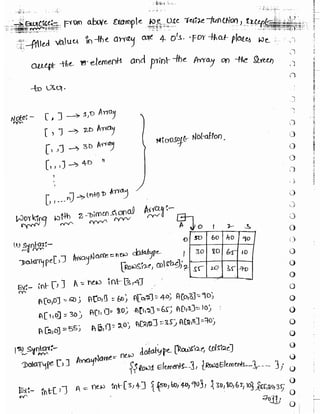 Exercise:- From above Example we use Resize function, Except
-filled values in the array are 4 0's. For that places we
accept the n elements and print the Array on the Screen
to User.
Note:- [ , ] → 2,D Array
[ , ] → 2D Array
[ , , ] → 3D Array
[ , , , ] → 4D "
[, , ... n] → (nth) D Array
Microsoft Notation.
Working with 2-Dimensional Array:-
A 0 1 2 3
0 50 60 40 90
1 30 80 65 10
2 55 20 35 70
(1) Syntax:-
DataType[,] ArrayName = new datatype
[RowSize, colsize];
Ex:- int[,] A = new int[3,4]
A[0,0] = 50; A[0,1] = 60; A[0,2] = 40; A[0,3] = 90;
A[1,0] = 30; A[1,1] = 80; A[1,2] = 65; A[1,3] = 10;
A[2,0] = 55; A[2,1] = 20; A[2,2] = 35; A[2,3] = 70;
Syntax:-
DataType [,] ArrayName = new datatype [RowSize, colsize]
{{Rows Elements--}, {RowsElements---}, ---- };
Ex:- int[,] A = new int[3,4] {{50,60,40,90}, {30,80,65,10}, {55,20,35
,70}};